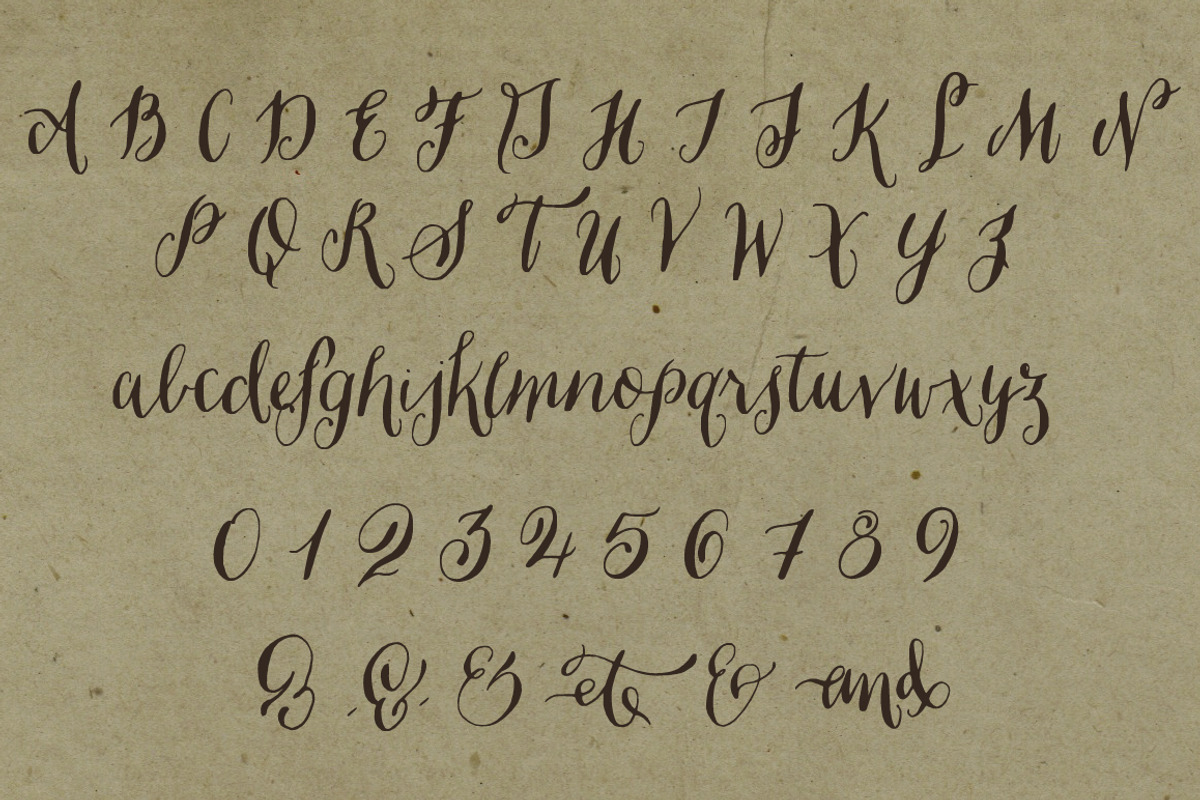 A B C D E F G H I J K L M N
P Q R S T U V W X Y Z
abcdefghijklmnopqrstuvwxyz
0 1 2 3 4 5 6 7 8 9
& & & et & and